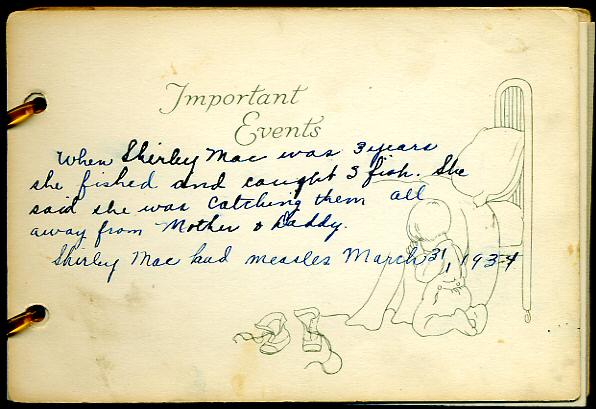 Important
Events
When Shirley Mac was 3 years
she fished and caught 3 fish. She
said she was catching them all
away from Mother & Daddy.
Shirley Mac had measles March 31, 1934